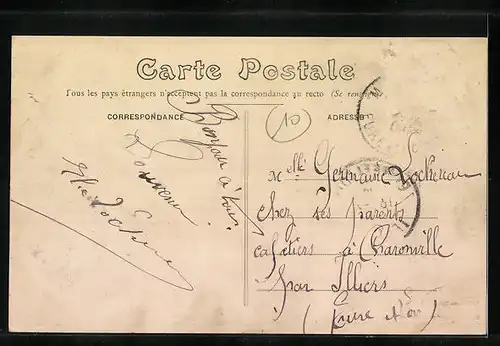 Carte Postale
Tous les pays étrangers n'acceptent pas la correspondance au recto (Se renseigner
CORRESPONDANCE
ADRESSE
Bonjour à tous
Souvenir
10
Melle Germaine
chez ses parents
cafetiers à Charonville
par Illiers
(Eure & L